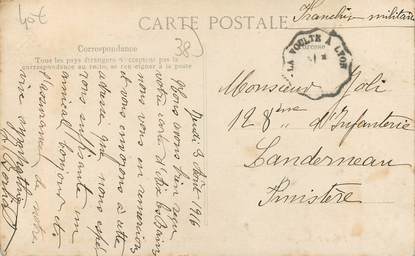 40€
CARTE POSTALE
38
Franchise militaire
Correspondance
Tous les pays étrangers n'acceptent pas la
correspondance au recto, se renseigner à la poste
LA VOULTE À LYON
Jeudi 3 Août 1916
Nous avons bien reçu
votre carte d'Aix les Bains
nous vous en remercions
et vous envoyons à cette
adresse qui nous espé
vous suffisante un
amical bonjour et
l'assurance de notre
vive sympathie
Monsieur Joli
128ème d'Infanterie
Landerneau
Finistère